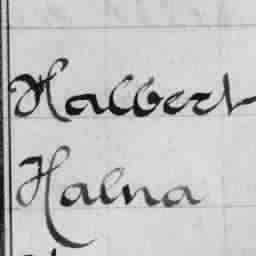 Halbert
Halna